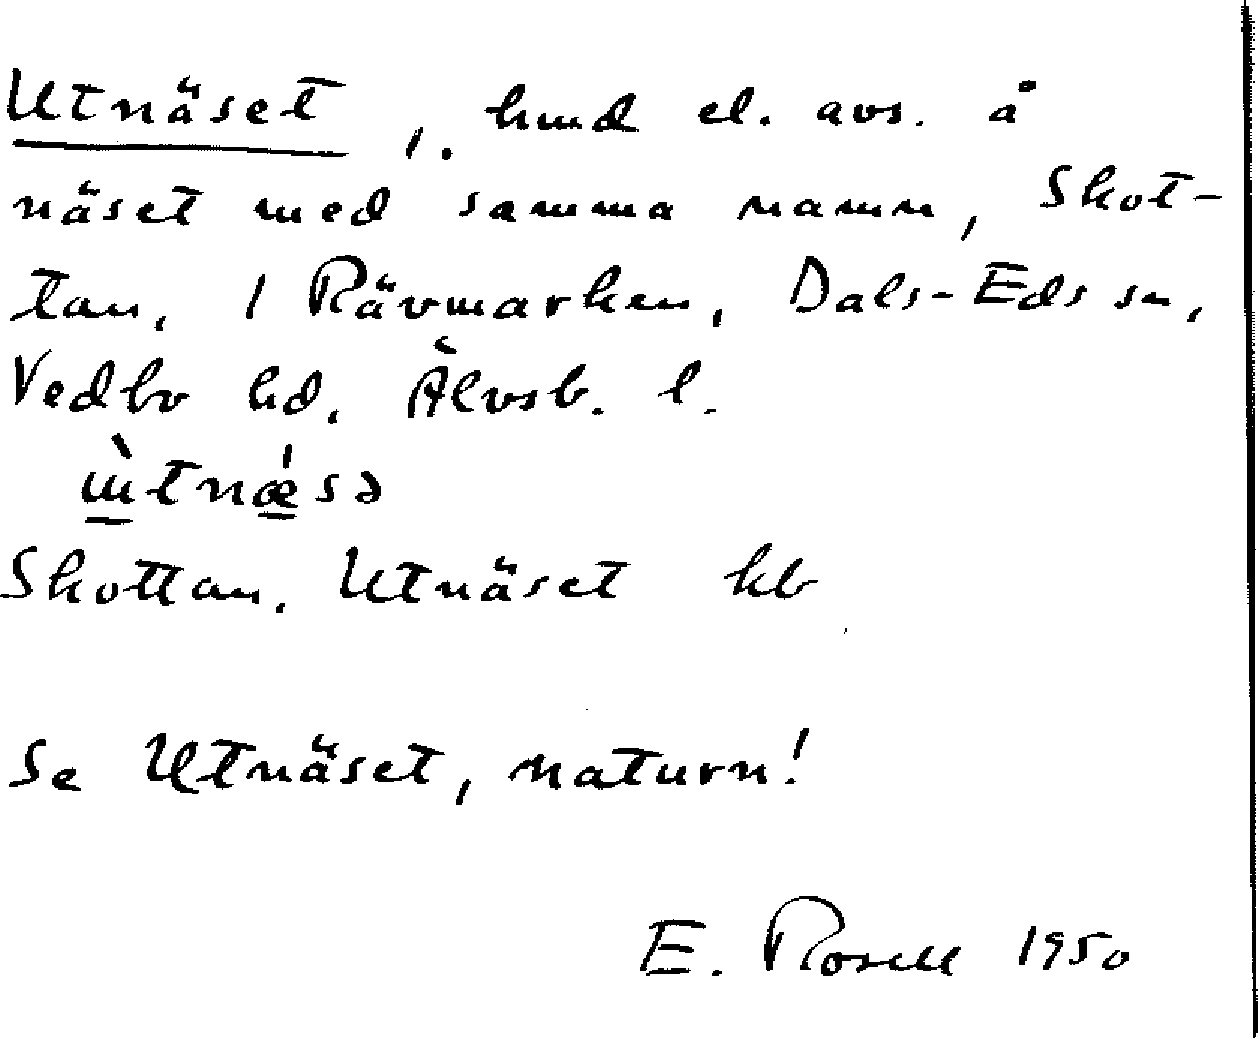 Utnäset, 1. hmd el. avs. å
näset med samma namn, Skot-
tan, 1 Rävmarken, Dals-Eds sn,
Vedbo hd. Älvsb. l.
ùtnǽsə
Skottan, Utnäset kb
Se Utnäset, naturn!
E. Rosell 1950